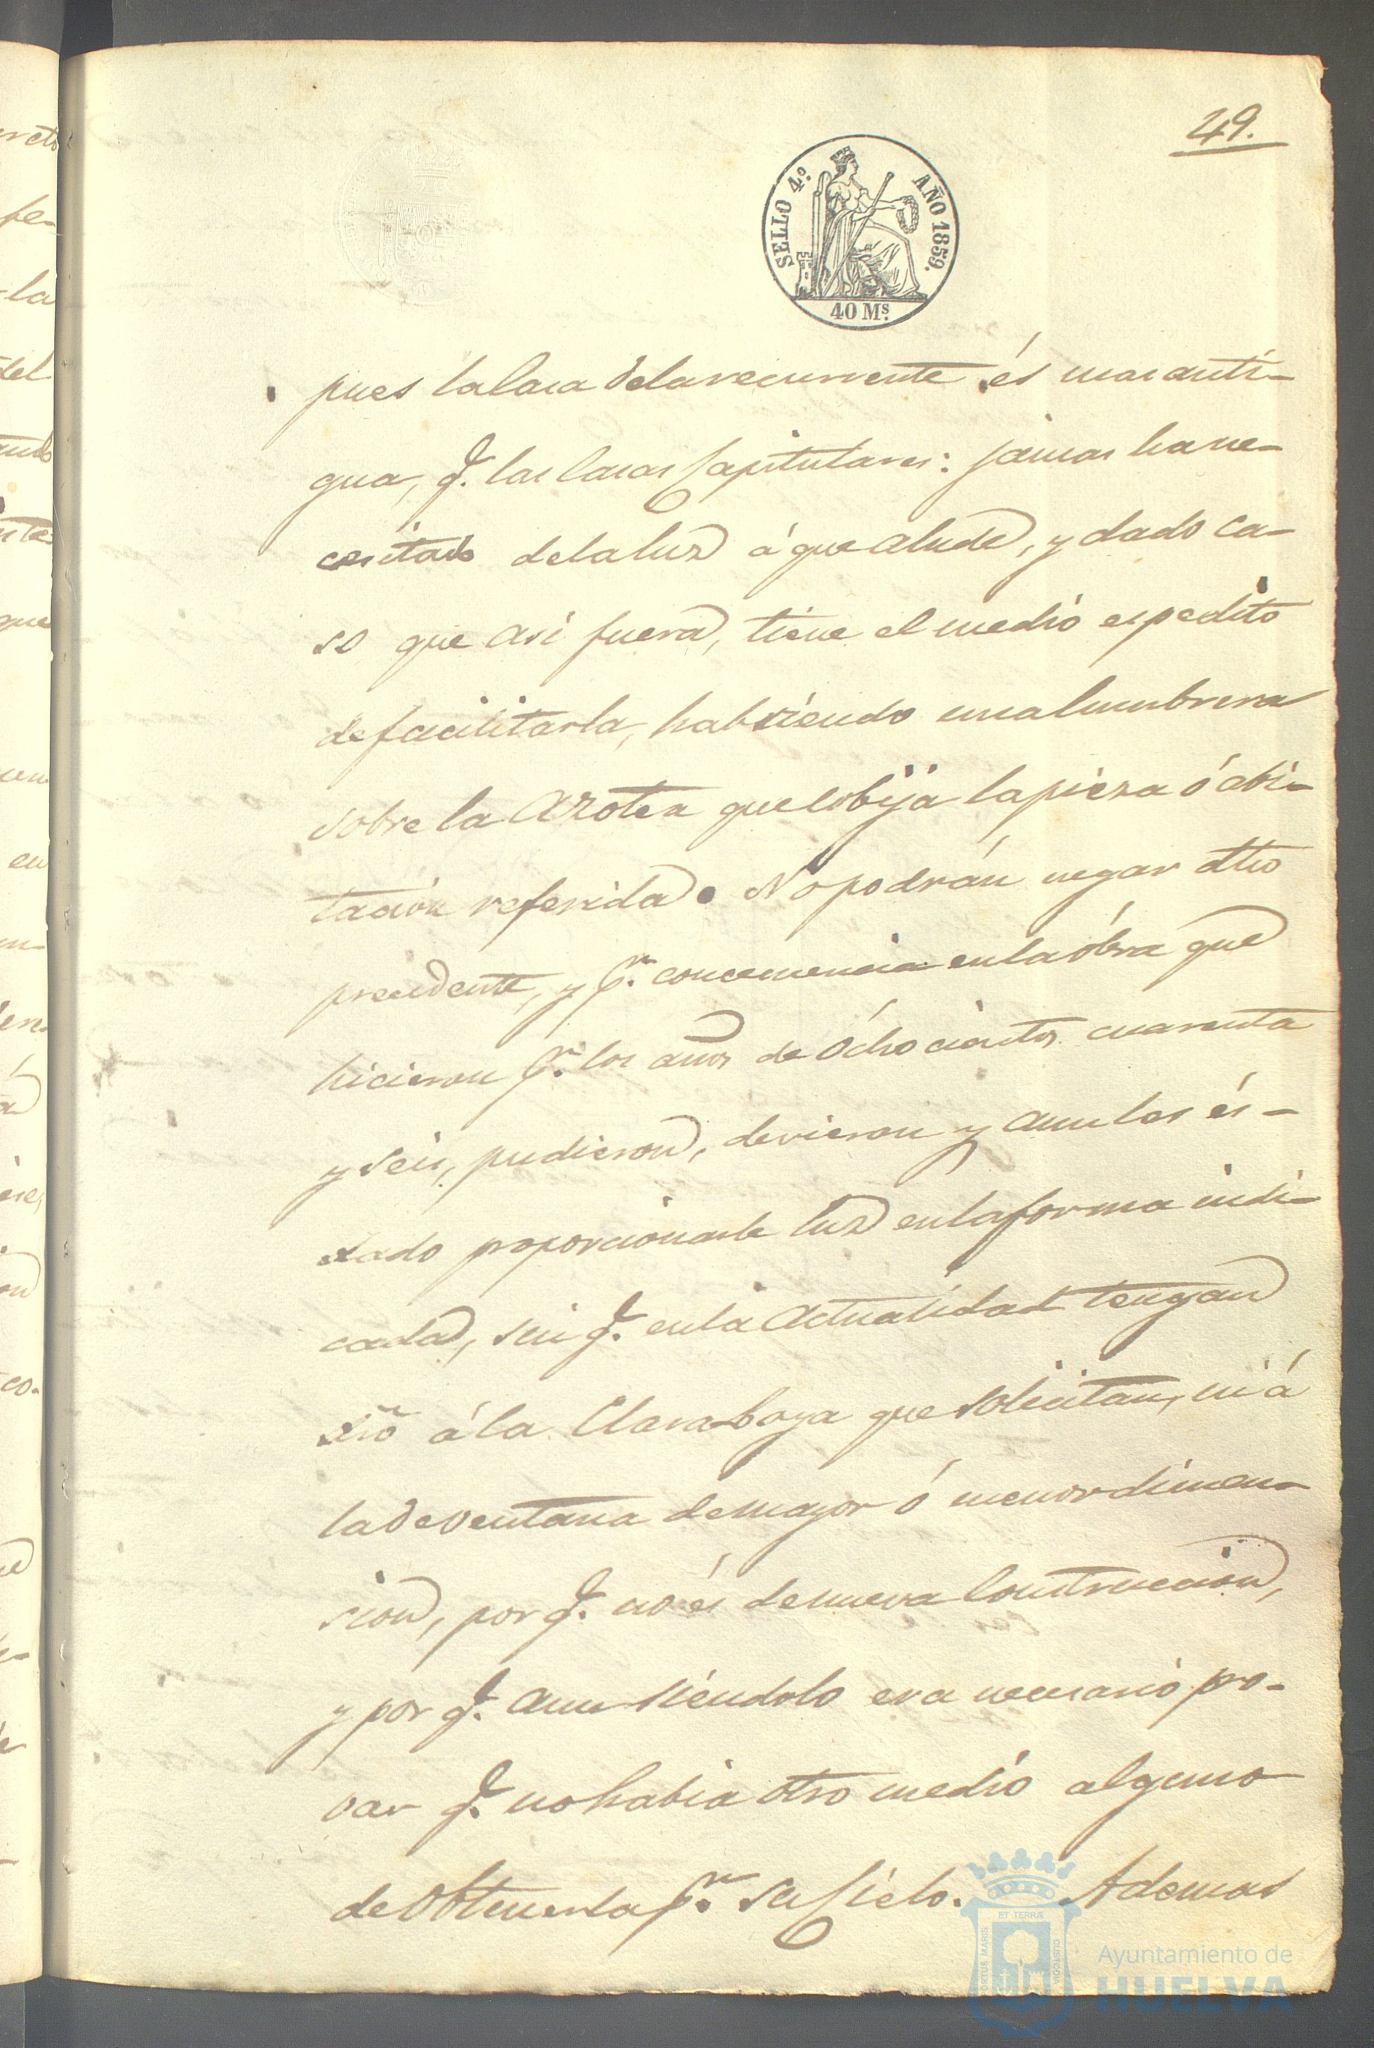 49.
SELLO 4.º AÑO 1859.
40 Ms.
pues la Casa de la recurrente és mas anti-
gua, q.e las Casas Capitulares: jamas ha ne-
cesitado de la luz á que alude, y dado ca-
so que asi fuera, tiene el medio espedito
de facilitarla, habriendo una lumbrera
sobre la azotea que cobija la pieza ó abi-
tación referida. No podrán negar dho
precedente, y p.r concecuencia en la óbra que
hicieron p.r los años de óchocientos cuarenta
y seis, pudieron, devieron y aun les és-
dado proporcionarle luz en la forma indi-
cada, sin q.e en la actualidad tengan
dro á la Claraboya que solicitan, ni á
la de ventana de mayor ó menor dimen-
sion, por q.e no és de nueva Construccion,
y por q.e aun siéndolo era necesario pro-
var q.e no habia otro medio alguno
de obtenerla p.r su Cielo. Ademas
PORTUS MARIS ET TERRÆ CUSTODIA
Ayuntamiento de
HUELVA